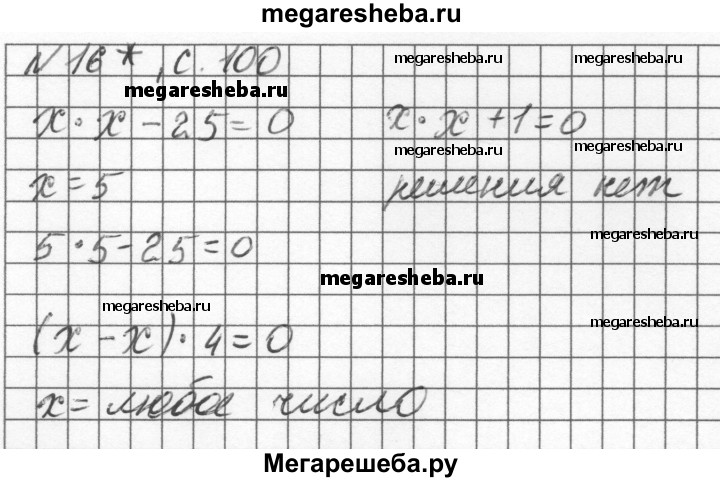 megaresheba.ru
N 16*, с. 100
megaresheba.ru megaresheba.ru
megaresheba.ru
x · x - 25 = 0
x · x + 1 = 0
megaresheba.ru megaresheba.ru
x = 5
решения нет
5 · 5 - 25 = 0
megaresheba.ru
megaresheba.ru
megaresheba.ru
megaresheba.ru
(x - x) · 4 = 0
x = любое число
Мегарешеба.ру